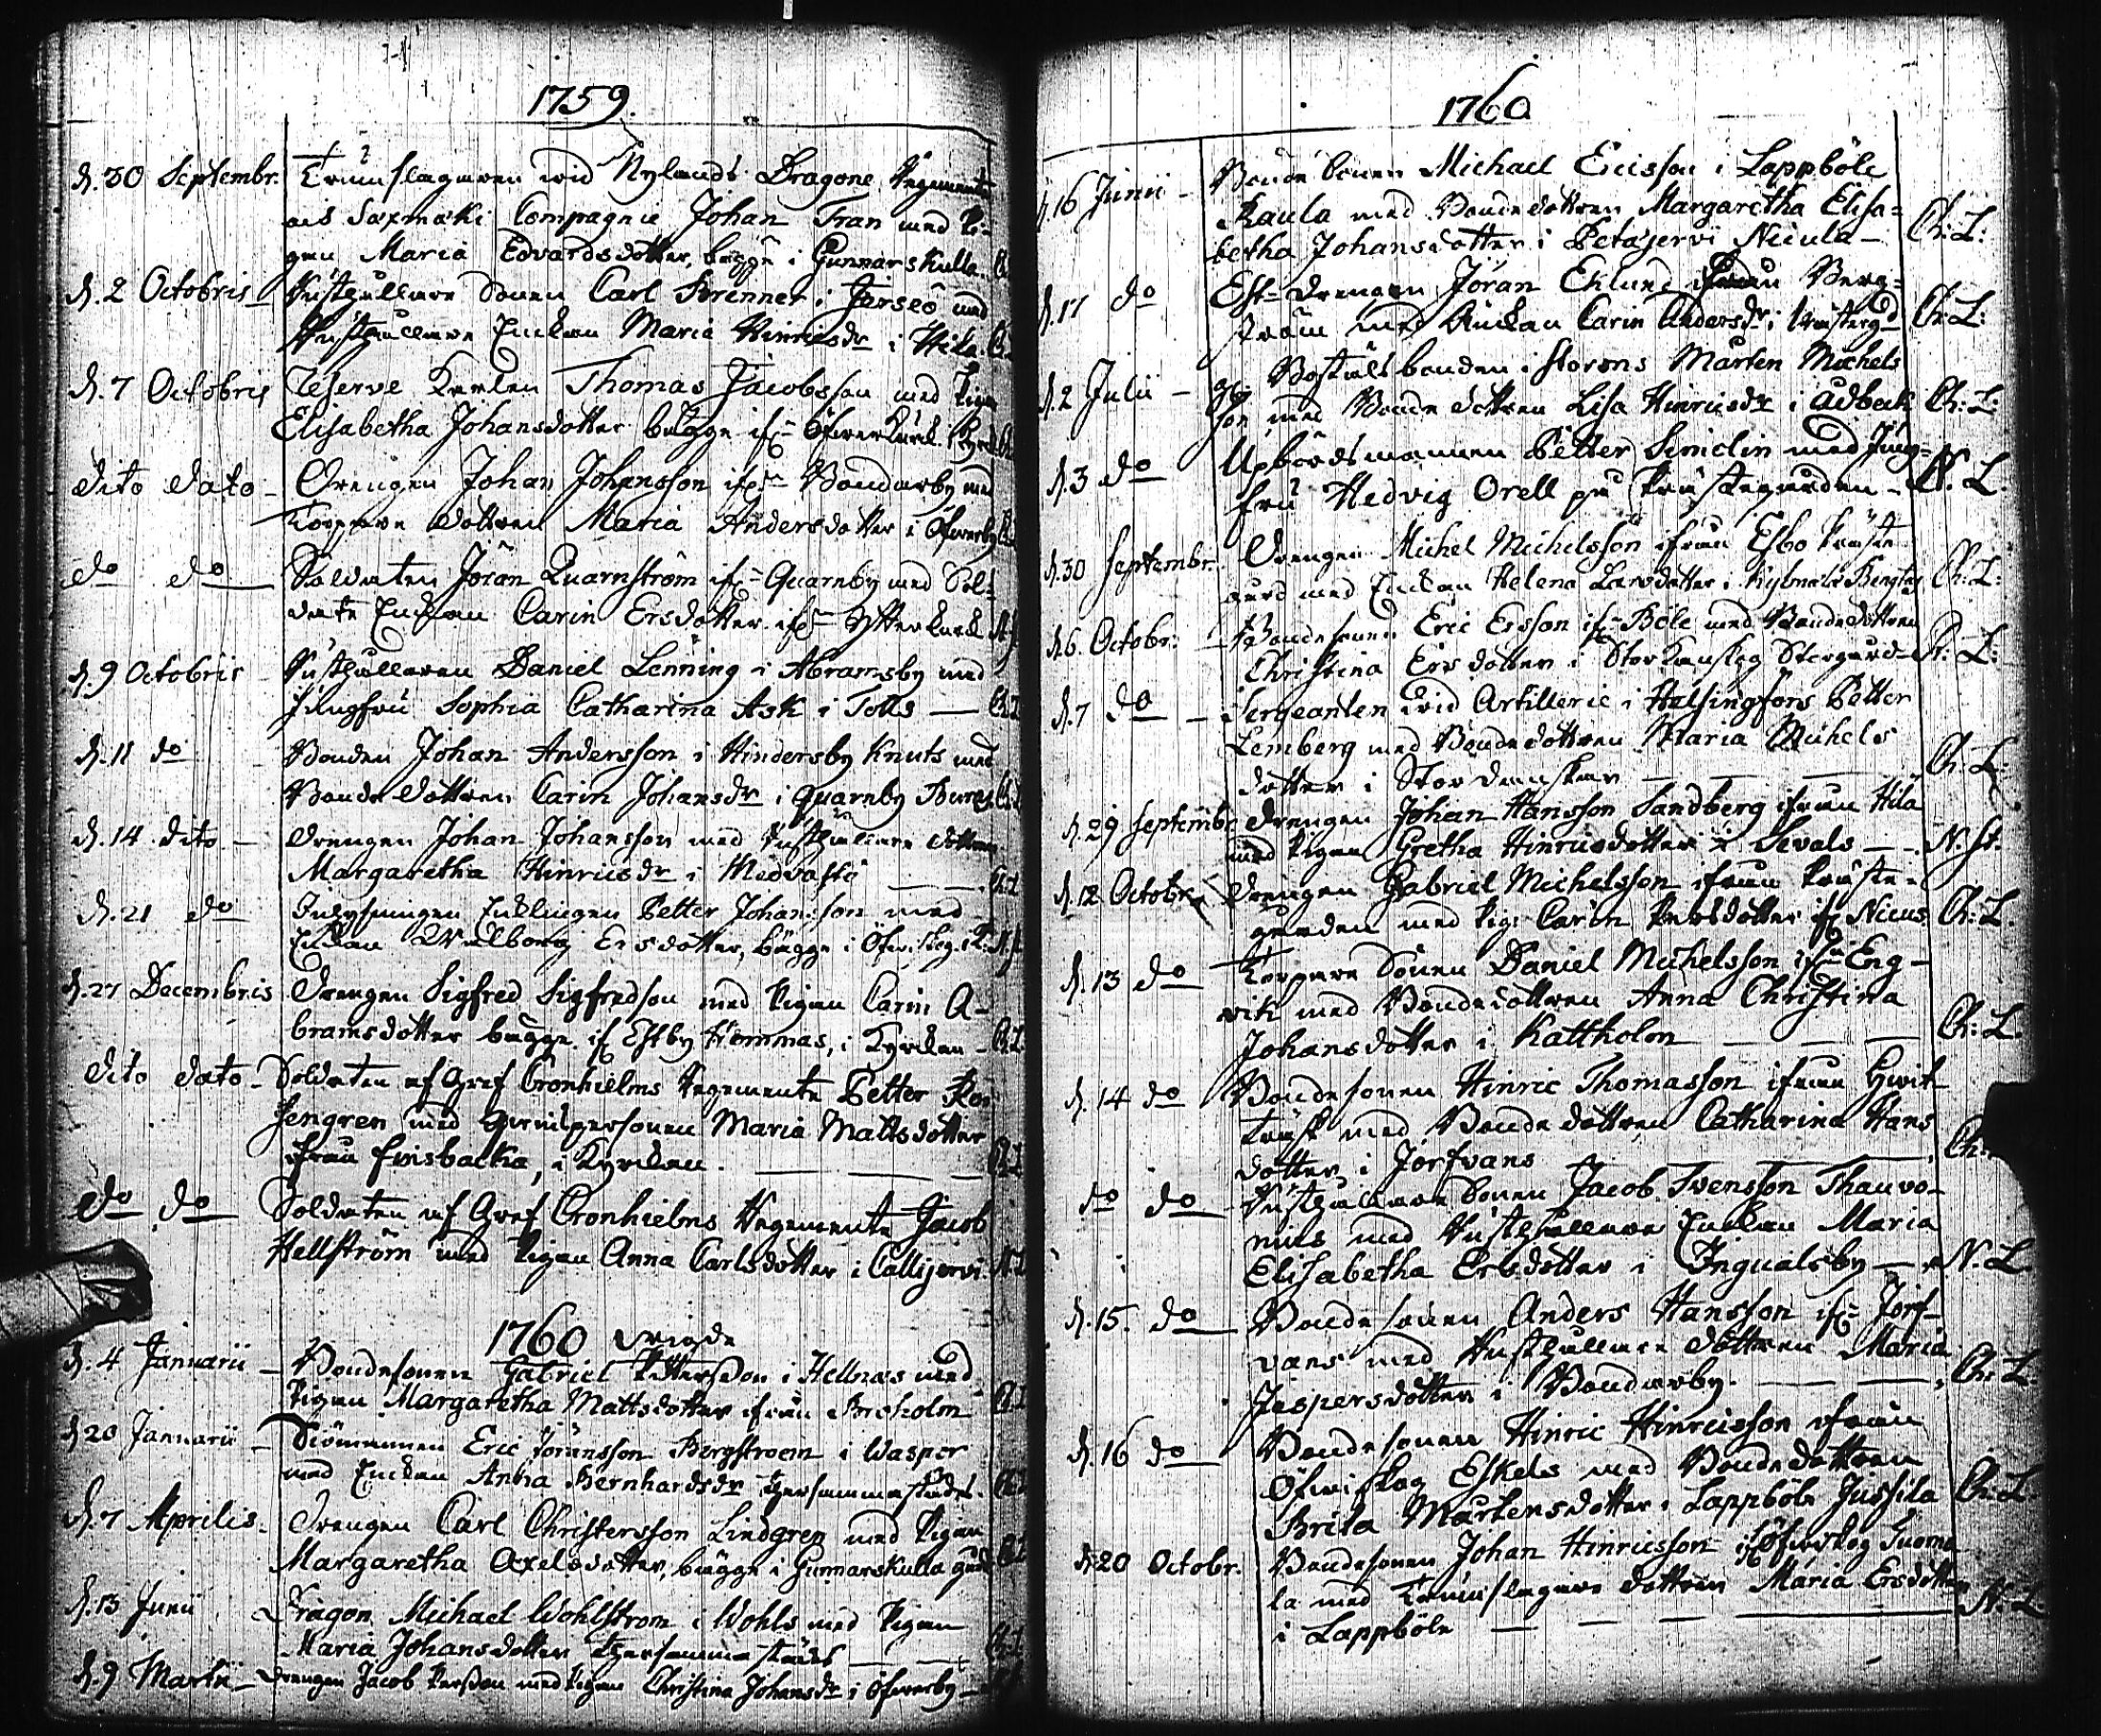 1759.
d. 30 Septembr. Trumslagaren wid Nylands Dragone Regemente
och Saxmaki Compagnie Johan Fran med Pi-
gan Maria Edvardsdotter, bägge i Gunnarskulla.
d. 2 Octobris Rusthållare Sonen Carl Brenner i Jårseö med
Rusthållare Enckan Maria Hinricsdr i Hila.
d. 7 Octobris Reserve Karlen Thomas Jacobsson med Pigan
Elisabetha Johansdotter bägge ifr. Öfwerkurck
Dito dato Drengen Johan Johansson ifrn Bondarby med
Torpare dottren Maria Andersdotter i Öfwerby
do do Soldaten Jöran Quarnström ifrn Quarnby med Sol-
date Enckan Carin Ersdotter ifrn Ytterkurck
d. 9 Octobris Rusthållaren Daniel Lenning i Abramsby med
Jungfru Sophia Catharina Ask i Tolls Ch: L
d. 11 do Bonden Johan Andersson i Hindersby Knuts med
Bonde dottren Carin Johansdr i Quarnby
d. 14 dito Drengen Johan Johansson med Rusthållare dottren
Margaretha Hinricsdr i Medvastö Ch: L
d. 21 do Inhysningen Encklingen Petter Johansson med
Enckan Walborg Ersdotter, bägge i
d. 27 Decembris Drengen Sigfred Sigfredson med Pigan Carin A-
bramsdotter bägge if Estby Hommas, i Kyrckan Ch: L
Dito dato Soldaten af Gref Cronhielms Regemente Petter Ro-
sengren med Qwinspersonen Maria Mattsdotter
ifrån Finsbacka, i Kyrckan. Ch: L
do do Soldaten af Gref Cronhielms Regemente Jacob
Hellström med Pigan Anna Carlsdotter i Callijervi. N: L
1760 wigde
d. 4 Januarii Bondesonen Gabriel Pettersson i Hellnäs med
Pigan Margaretha Mattsdotter ifrån Busholm Ch: L
d. 20 Januarii Siömannen Eric Jöransson Bergstroem i Wasper
med Enckan Anna Bernhardsdr thersammastädes. Ch: L
d. 7 Aprilis. Drengen Carl Christersson Lindgren med Pigan
Margaretha Axelsdotter, bägge i Gunnarskulla gård Ch: L
d. 13 Junii Dragon Michael Wohlstrom i Wohls med Pigan
Maria Johansdotter thersammastädes Ch: L
d. 9 Martii Drengen Jacob Persson med Pigan Christina Johansdr i Öfwerby
1760
d. 16 Junii Bonde Sonen Michael Ericsson i Lappböle
Kaula med Bondedottren Margaretha Elisa-
betha Johansdotter i Petäjervi Nicula Ch: L:
d. 17 do Est-Drengen Jöran Eklund ifrån Berg-
ström med Änckan Carin Andersdr i Ch: L:
d. 2 Julii Bostälsbonden i Storons Mårten Michels
son med Bonde dottren Lisa Hinricsdr i Adbeck Ch: L.
d. 3 do Upbördsmannen Petter Simelin med Jung-
fru Hedvig Orell på Prästegården N. L.
d. 30 Septembr. Drengen Michel Michelsson ifrån Esbo Präste
gård med Enckan Helena Larsdotter i Kylmälä Bengtes Ch: L:
d. 6 Octobr: Bondesonen Eric Ersson if. Böle med Bondedottren
Christina Ersdotter i Storkanskog Storgård Ch: L:
d. 7 do Sergeanten wid Artillerie i Helsingfors Petter
Lemberg med Bondedottren Maria Michels
dotter i Stordansker Ch: L:
d. 29 Septembr Drengen Johan Hansson Sandberg ifrån Hila
med Pigan Gretha Hinricsdotter i Sevals N. St.
d. 12 Octobr. Drengen Gabriel Michelsson ifrån Präste-
gården med Pig: Carin Persdotter if Nicus Ch: L.
d. 13 do Torpare Sonen Daniel Michelsson ifrn Eng-
wik med Bondedottren Anna Christina
Johansdotter i Kattholm Ch: L.
d. 14 do Bondesonen Hinric Thomasson ifrån Hwit-
träsk med Bonde dottren Catharina Hans
dotter i Jorfvans Ch:
do do Rusthållare Sonen Jacob Svensson Thauvo-
nius med Rusthållare Enckan Maria
Elisabetha Ersdotter i Ingvalsby N. L.
d. 15. do Bondesonen Anders Hansson ifrn Jorf-
vans med Rusthållare dottren Maria
Jespersdotter i Bondarby. Ch: L.
d. 16 do Bondesonen Hinric Hinricsson ifrån
Öfwitskog Eskels med Bondedottren
Brita Mårtensdotter i Lappböle Jussila Ch: L.
d. 20 Octobr. Bondesonen Johan Hinricsson if Öfwitskog Tuoma
la med Trumslagare dottren Maria Ersdotter
i Lappböle N. L.